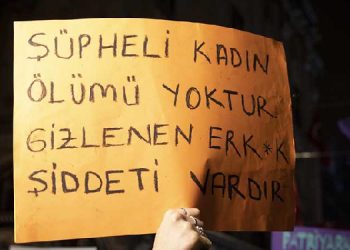 ŞÜPHELİ KADIN
ÖLÜMÜ YOKTUR
GİZLENEN ERK*K
ŞİDDETİ VARDIR